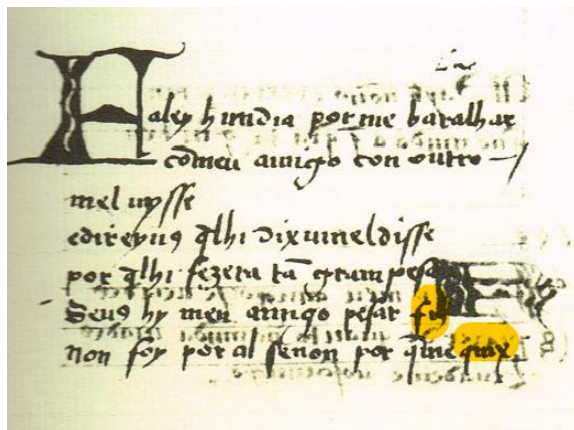 Faley hundia porme baralhar
cõmeu amigo con outro
mel uysse
edireyuꝯ q̃lhi dixumeldisse
por q̃lhi fezera tã gram pesar
Seuꝯ hy meu amigo pesar fiz
non foy por al senon por q̃me quix